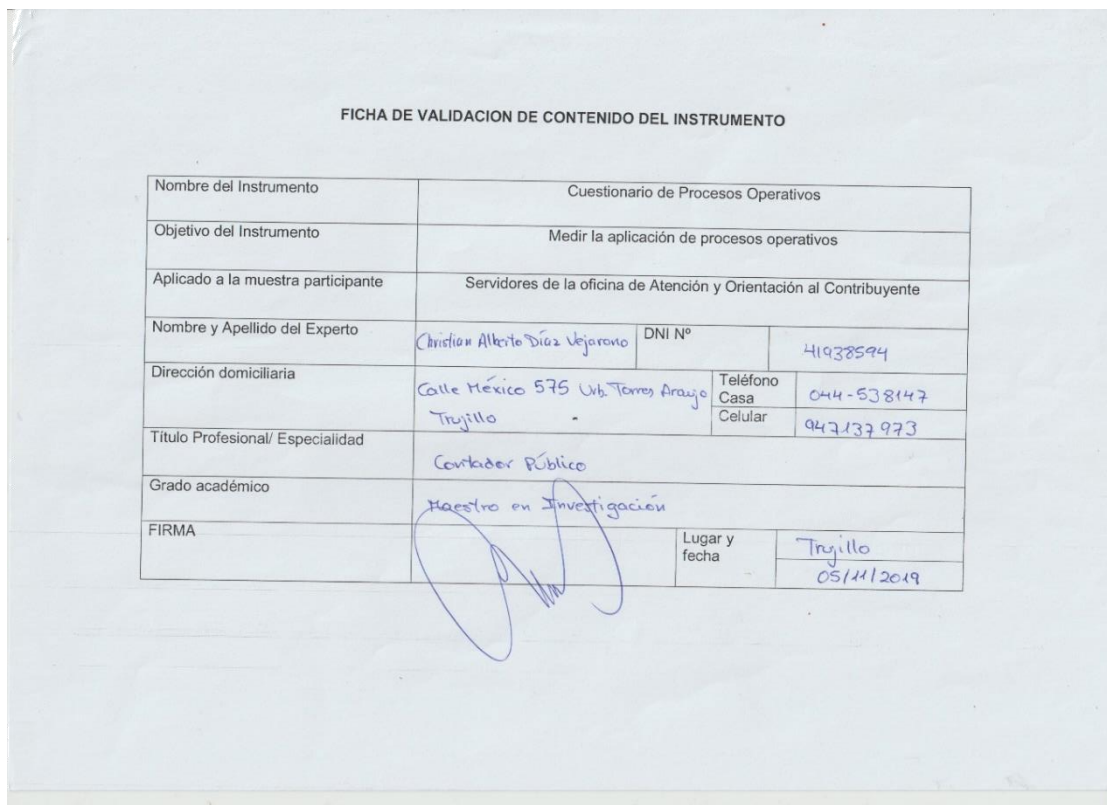 FICHA DE VALIDACION DE CONTENIDO DEL INSTRUMENTO
Nombre del Instrumento
Cuestionario de Procesos Operativos
Objetivo del Instrumento
Medir la aplicación de procesos operativos
Aplicado a la muestra participante
Servidores de la oficina de Atención y Orientación al Contribuyente
Nombre y Apellido del Experto
Christian Alberto Díaz Vejarano
DNI Nº
41938594
Dirección domiciliaria
Calle México 575 Urb. Torres Araujo
Trujillo -
Teléfono
Casa
044-538147
Celular
947137973
Título Profesional/ Especialidad
Contador Público
Grado académico
Maestro en Investigación
FIRMA
Lugar y
fecha
Trujillo
05/11/2019